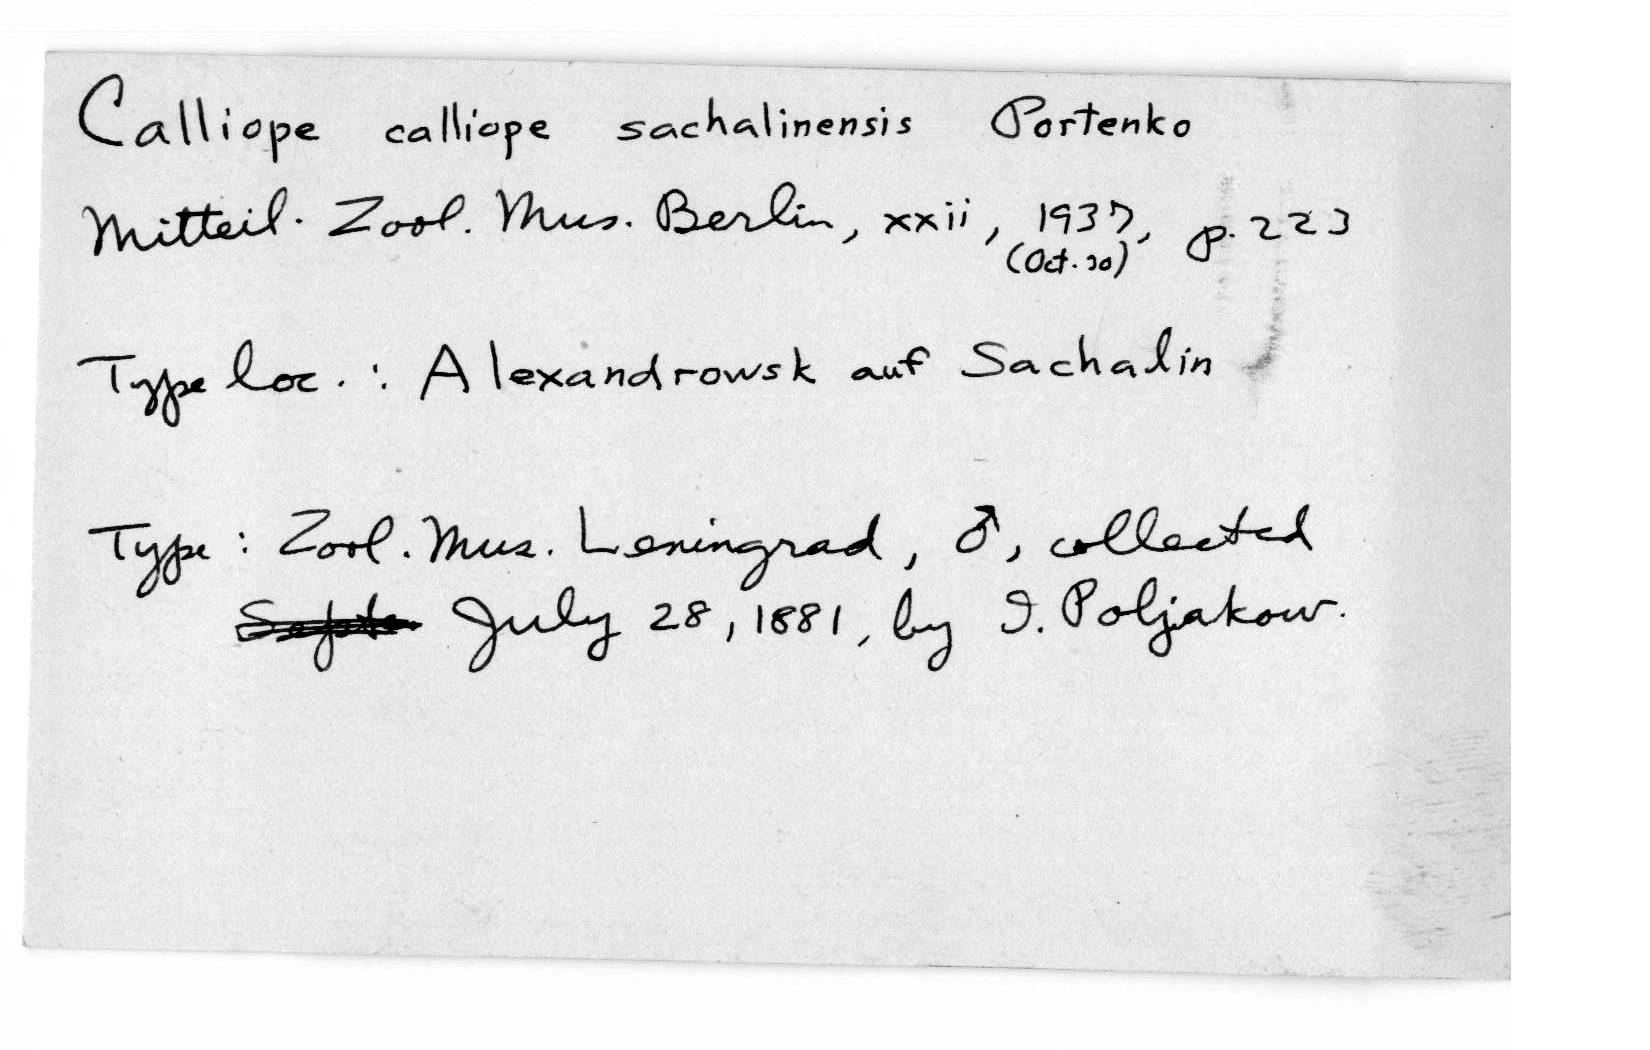 Calliope calliope sachalinensis Portenko
Mitteil. Zool. Mus. Berlin, xxii, 1937, p. 223
(Oct. 30)
Type loc. : Alexandrowsk auf Sachalin
Type : Zool. Mus. Leningrad, ♂, collected
July 28, 1881, by I. Poljakow.